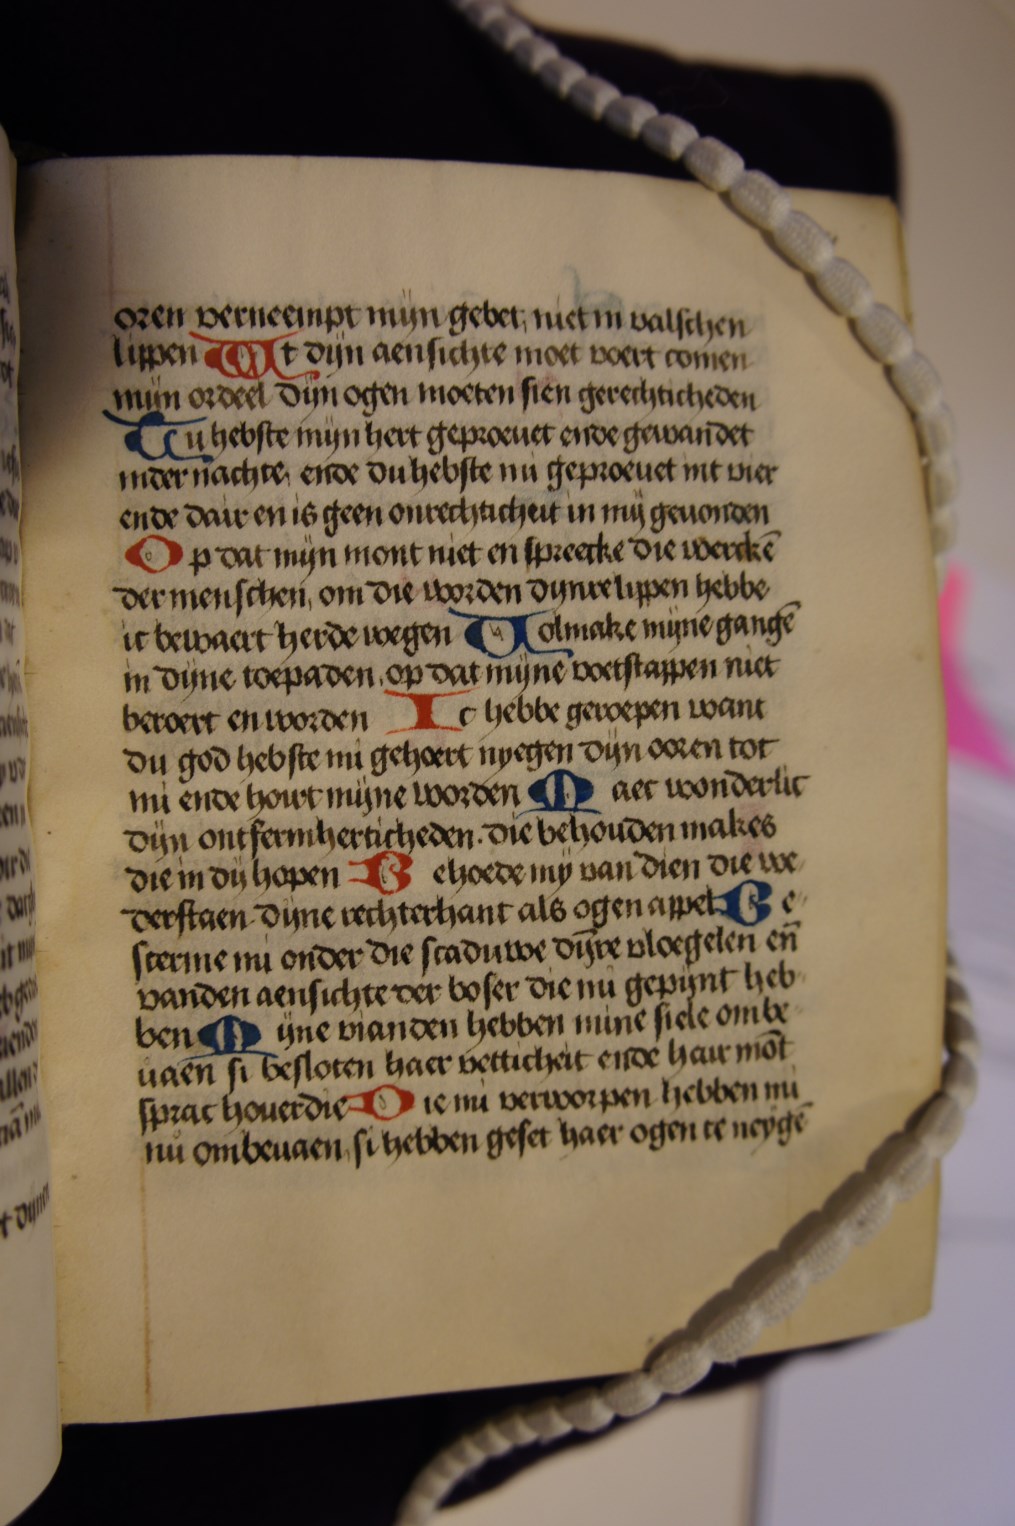 oren verneempt mijn gebet, niet in valschen
lippen Vt dijn aensichte moet voert comen
mijn ordeel dijn ogen moeten sien gerechticheden
Du hebste mijn hert geproeuet ende gewandet
inder nachte, ende du hebste mi geproeuet mt vier
ende dair en is geen onrechticheit in mij geuonden
Op dat mijn mont niet en spreecke die werckē
der menschen, om die worden dijnre lippen hebbe
ic bewaert herde wegen Volmake mijne gangē
in dijne toepaden, op dat mijne voetstappen niet
beroert en worden Ic hebbe geroepen want
du god hebste mi gehoert nyegen dijn ooren tot
mi ende howt mijne worden Maec wonderlic
dijn ontfermherticheden. die behouden makes
die in dij hopen Behoede mij van dien die we
derstaen dijne rechterhant als ogen appel Be
scerme mi onder die scaduwe dijre vloegelen en̄
vanden aensichte der boser die mi gepijnt heb
ben Mijne vianden hebben mine siele ombe
uaen si besloten haer vetticheit ende hair mōt
sprac houerdie Die mi verworpen hebben mi
nu ombeuaen, si hebben geset haer ogen te neygē